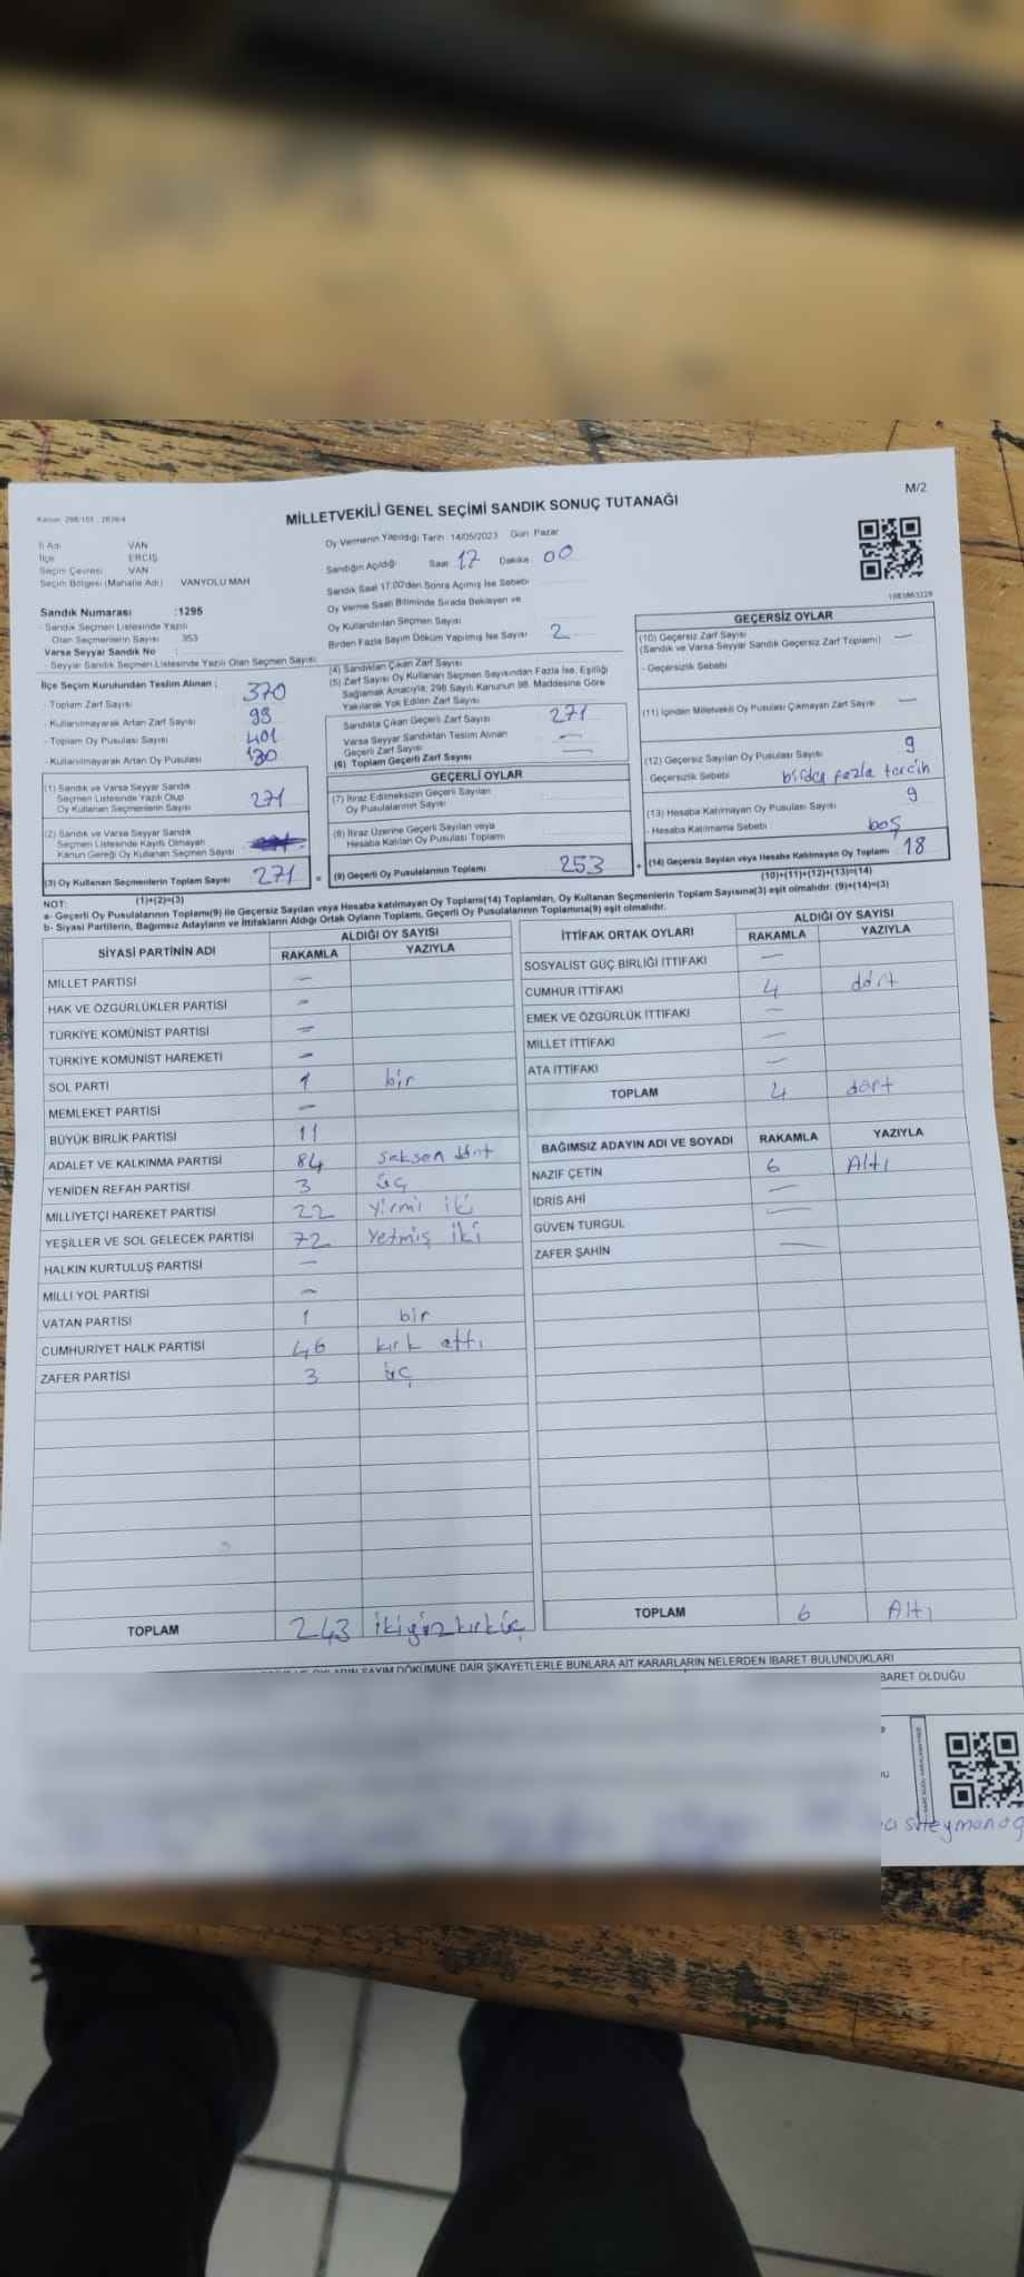 M/2
MİLLETVEKİLİ GENEL SEÇİMİ SANDIK SONUÇ TUTANAĞI
İl Adı VAN
İlçe ERCİŞ
Seçim Çevresi VAN
Seçim Bölgesi (Mahalle Adı) VANYOLU MAH
Oy Vermenin Yapıldığı Tarih 14/05/2023 Gün Pazar
Sandığın Açıldığı Saat 17 Dakika 00
Sandık Saat 17.00'den Sonra Açımış İse Sebebi
Oy Verme Saati Bitiminde Sırada Bekleyen ve
Oy Kullandırılan Seçmen Sayısı
Birden Fazla Sayım Döküm Yapılmış İse Sayısı 2
Sandık Numarası :1295
- Sandık Seçmen Listesinde Yazılı
Olan Seçmenlerin Sayısı 353
Varsa Seyyar Sandık No :
- Seyyar Sandık Seçmen Listesinde Yazılı Olan Seçmen Sayısı
İlçe Seçim Kurulundan Teslim Alınan :
- Toplam Zarf Sayısı 370
- Kullanılmayarak Artan Zarf Sayısı
- Toplam Oy Pusulası Sayısı 401
- Kullanılmayarak Artan Oy Pusulası 130
(1) Sandık ve Varsa Seyyar Sandık
Seçmen Listesinde Yazılı Olup
Oy Kullanan Seçmenlerin Sayısı 271
(2) Sandık ve Varsa Seyyar Sandık
Seçmen Listesinde Kayıtlı Olmayan
Kanun Gereği Oy Kullanan Seçmen Sayısı
(3) Oy Kullanan Seçmenlerin Toplam Sayısı 271 =
(1)+(2)=(3)
(4) Sandıktan Çıkan Zarf Sayısı
(5) Zarf Sayısı Oy Kullanan Seçmen Sayısından Fazla İse, Eşitliği
Sağlamak Amacıyla; 298 Sayılı Kanunun 98. Maddesine Göre
Yakılarak Yok Edilen Zarf Sayısı
Sandıkta Çıkan Geçerli Zarf Sayısı 271
Varsa Seyyar Sandıktan Teslim Alınan
Geçerli Zarf Sayısı —
(6) Toplam Geçerli Zarf Sayısı —
GEÇERLİ OYLAR
(7) İtiraz Edilmeksizin Geçerli Sayılan
Oy Pusulalarının Sayısı
(8) İtiraz Üzerine Geçerli Sayılan veya
Hesaba Katılan Oy Pusulası Toplamı
(9) Geçerli Oy Pusulalarının Toplamı 253 +
GEÇERSİZ OYLAR
(10) Geçersiz Zarf Sayısı —
(Sandık ve Varsa Seyyar Sandık Geçersiz Zarf Toplamı)
- Geçersizlik Sebebi
(11) İçinden Milletvekili Oy Pusulası Çıkmayan Zarf Sayısı —
(12) Geçersiz Sayılan Oy Pusulası Sayısı 9
- Geçersizlik Sebebi birden fazla tercih
(13) Hesaba Katılmayan Oy Pusulası Sayısı 9
- Hesaba Katılmama Sebebi boş
(14) Geçersiz Sayılan veya Hesaba Katılmayan Oy Toplamı 18
(10)+(11)+(12)+(13)=(14)
NOT:
a- Geçerli Oy Pusulalarının Toplamı(9) ile Geçersiz Sayılan veya Hesaba katılmayan Oy Toplamı(14) Toplamları, Oy Kullanan Seçmenlerin Toplam Sayısına(3) eşit olmalıdır. (9)+(14)=(3)
b- Siyasi Partilerin, Bağımsız Adayların ve İttifakların Aldığı Ortak Oyların Toplamı, Geçerli Oy Pusulalarının Toplamına(9) eşit olmalıdır.
SİYASİ PARTİNİN ADI ALDIĞI OY SAYISI
RAKAMLA YAZIYLA
MİLLET PARTİSİ —
HAK VE ÖZGÜRLÜKLER PARTİSİ —
TÜRKİYE KOMÜNİST PARTİSİ —
TÜRKİYE KOMÜNİST HAREKETİ —
SOL PARTİ 1 bir
MEMLEKET PARTİSİ —
BÜYÜK BİRLİK PARTİSİ 11
ADALET VE KALKINMA PARTİSİ 84 seksen dört
YENİDEN REFAH PARTİSİ 3 üç
MİLLİYETÇİ HAREKET PARTİSİ 22 yirmi iki
YEŞİLLER VE SOL GELECEK PARTİSİ 72 yetmiş iki
HALKIN KURTULUŞ PARTİSİ —
MİLLİ YOL PARTİSİ —
VATAN PARTİSİ 1 bir
CUMHURİYET HALK PARTİSİ 46 kırk altı
ZAFER PARTİSİ 3 üç
TOPLAM 243 ikiyüzkırküç
İTTİFAK ORTAK OYLARI ALDIĞI OY SAYISI
RAKAMLA YAZIYLA
SOSYALİST GÜÇ BİRLİĞİ İTTİFAKI —
CUMHUR İTTİFAKI 4 dört
EMEK VE ÖZGÜRLÜK İTTİFAKI —
MİLLET İTTİFAKI —
ATA İTTİFAKI —
TOPLAM 4 dört
BAĞIMSIZ ADAYIN ADI VE SOYADI RAKAMLA YAZIYLA
NAZİF ÇETİN 6 Altı
İDRİS AHİ —
GÜVEN TURGUL —
ZAFER ŞAHİN —
TOPLAM 6 Altı
SAYIM DÖKÜMÜNE DAİR ŞİKAYETLERLE BUNLARA AİT KARARLARIN NELERDEN İBARET BULUNDUKLARI
BARET OLDUĞU